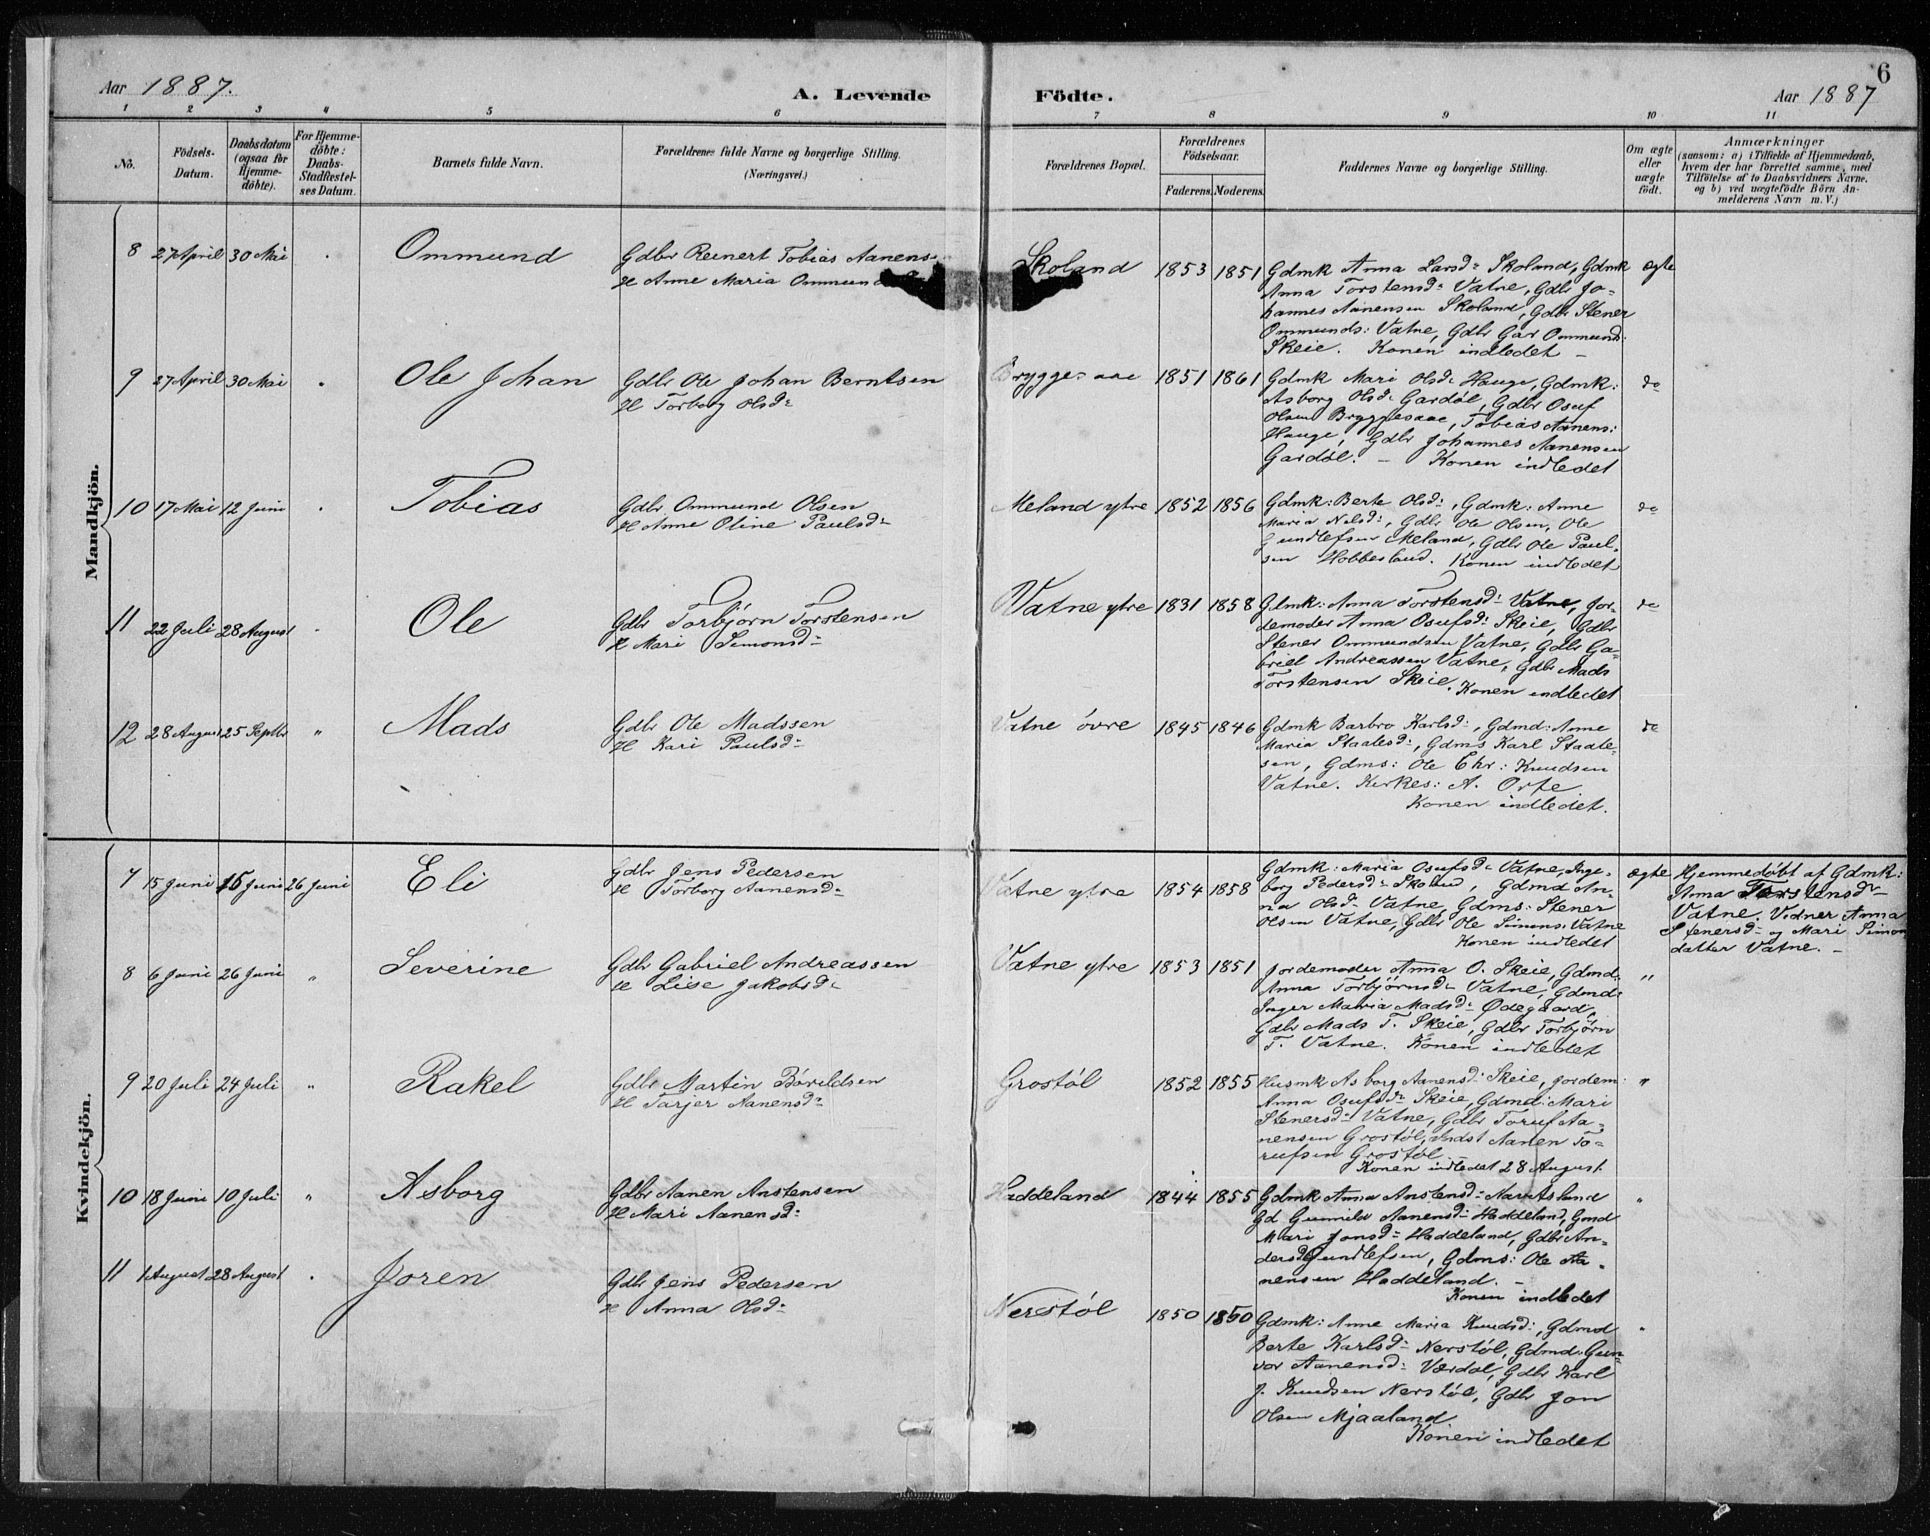 Aar 1887.
A. Levende Födte.
Aar 1887
6
1 2 3 4 5 6 7 8 9 10 11
No.
Födsels-Datum.
Daabsdatum (ogsaa for Hjemme-döbte).
For Hjemme-döbte: Daabs-Stadfæstel-ses Datum.
Barnets fulde Navn.
Forældrenes fulde Navne og borgerlige Stilling. (Næringsvei.)
Forældrenes Bopæl.
Forældrenes Födselsaar.
Faderens. Moderens.
Faddernes Navne og borgerlige Stilling.
Om ægte eller uægte födt.
Anmærkninger
(sansom: a) i Tilfælde af Hjemmedaab, hvem der har forrettet samme, med Tilföielse af to Daabsvidners Navne. og b) ved uægtefödte Börn An-melderens Navn m. V.)
Mandkjön.
8 27 April 30 Mai Ommund
Gdbr Reinert Tobias Aanens
H Anne Maria Ommund
Skoland 1853 1851
Gdmk Anna Larsd: Skoland, Gdmk
Anna Torstensd: Vatne, Gdbr Jo-
hannes Aanensen Skoland, Gdbr Stener
Ommunds: Vatne, Gdbr Gar Ommunds:
Skeie. Konen indledet –
ægte
9 27 April 30 Mai Ole Johan
Gdbr Ole Johan Berntsen
H Torborg Olsd:
Bryggesaae 1851 1861
Gdmk Mari Olsd: Hauge, Gdmk:
Asborg Olsd: Gardöl, Gdbr Osuf
Olsen Bryggesaae, Tobias Aanens:
Hauge, Gdbr Johannes Aanensen
Gardöl. – Konen indledet
do
10 17 Mai 12 Juni Tobias
Gdbr Ommund Olsen
H Anne Oline Paulsd:
Meland ytre 1852 1856
Gdmk: Berte Olsd:, Gdmk: Anne
Maria Nelsd:, Gdbr Ole Olsen, Ole
Gundlefsen Meland, Gdbr Ole Paul-
sen Hobbesland. Konen indledet
do
11 22 Juli 28 August Ole
Gdbr Torbjörn Torstensen
H Mari Simonsd:
Vatne ytre 1831 1858
Gdmk: Anna Torstensd: Vatne, Jor-
demoder Anna Osufsd: Skeie, Gdbr
Stener Ommundsen Vatne, Gdbr Ga-
briel Andreassen Vatne, Gdbr Mads
Torstensen Skeie. Konen indledet
do
12 28 August 25 Septbr " Mads
Gdbr Ole Madssen
H Kari Paulsd:
Vatne övre 1845 1846
Gdmk Barbro Karlsd:, Gdmd: Anne
Maria Staalesd:, Gdms Karl Staale-
sen, Gdms: Ole Chr: Knudsen
Vatne. Kirkes: A. Orte
Konen indledet.
do
Kvindekjön.
7 15 Juni 15 Juni 26 Juni Eli
Gdbr Jens Pedersen
H Torborg Aanensd:
Vatne ytre 1854 1858
Gdmk: Maria Osufsd: Vatne, Inge-
borg Pedersd: Skoland, Gdmd An-
na Olsd: Vatne, Gdms: Stener
Olsen Vatne, Gdbr Ole Simens: Vatne
Konen indledet
ægte
Hjemmedöbt af Gdmk:
Anna Torstensd:
Vatne. Vidner Anna
Stenersd: og Mari Simon
datter Vatne. –
8 6 Juni 26 Juni " Severine
Gdbr Gabriel Andreassen
H Lise Jakobsd:
Vatne ytre 1853 1851
Jordemoder Anna O. Skeie, Gdmd:
Anna Torbjörnsd: Vatne, Gdmd:
Inger Maria Madsd: Ödegaard,
Gdbr Mads T. Skeie, Gdbr Torbjörn
T. Vatne. Konen indledet
"
9 20 Juli 24 Juli " Rakel
Gdbr Martin Bärildsen
H Tarjer Aanensd:
Grostöl 1852 1855
Husmk Asborg Aanensd: Skeie, Jordem:
Anna Osufsd: Skeie, Gdmd: Mari
Stenersd: Vatne, Gdbr Toruf Aa-
nensen Grostöl, Indst Aanen To-
rufsen Grostöl.
Konen indledet 28 August
"
10 18 Juni 10 Juli " Asborg
Gdbr Aanen Anstensen
H Mari Aanensd:
Haddeland 1844 1855
Gdmk Anna Anstensd: Navatsland
Gd Gunnild Aanensd: Haddeland, Gmd
Mari Jonsd: Haddeland, Gdbr An-
ders Gundlefsen, Gdms: Ole Aa-
nensen Haddeland. –
Konen indledet
"
11 1 August 28 August Joren
Gdbr Jens Pedersen
H Anna Olsd:
Nerstöl 1850 1850
Gdmk: Anne Maria Knudsd:, Gdmd
Berte Karlsd: Nerstöl, Gdmd: Gun-
vor Aanensd: Værdal, Gdbr Karl
J. Knudsen Nerstöl, Gdbr Jon
Olsen Mjaaland
Konen indledet
"